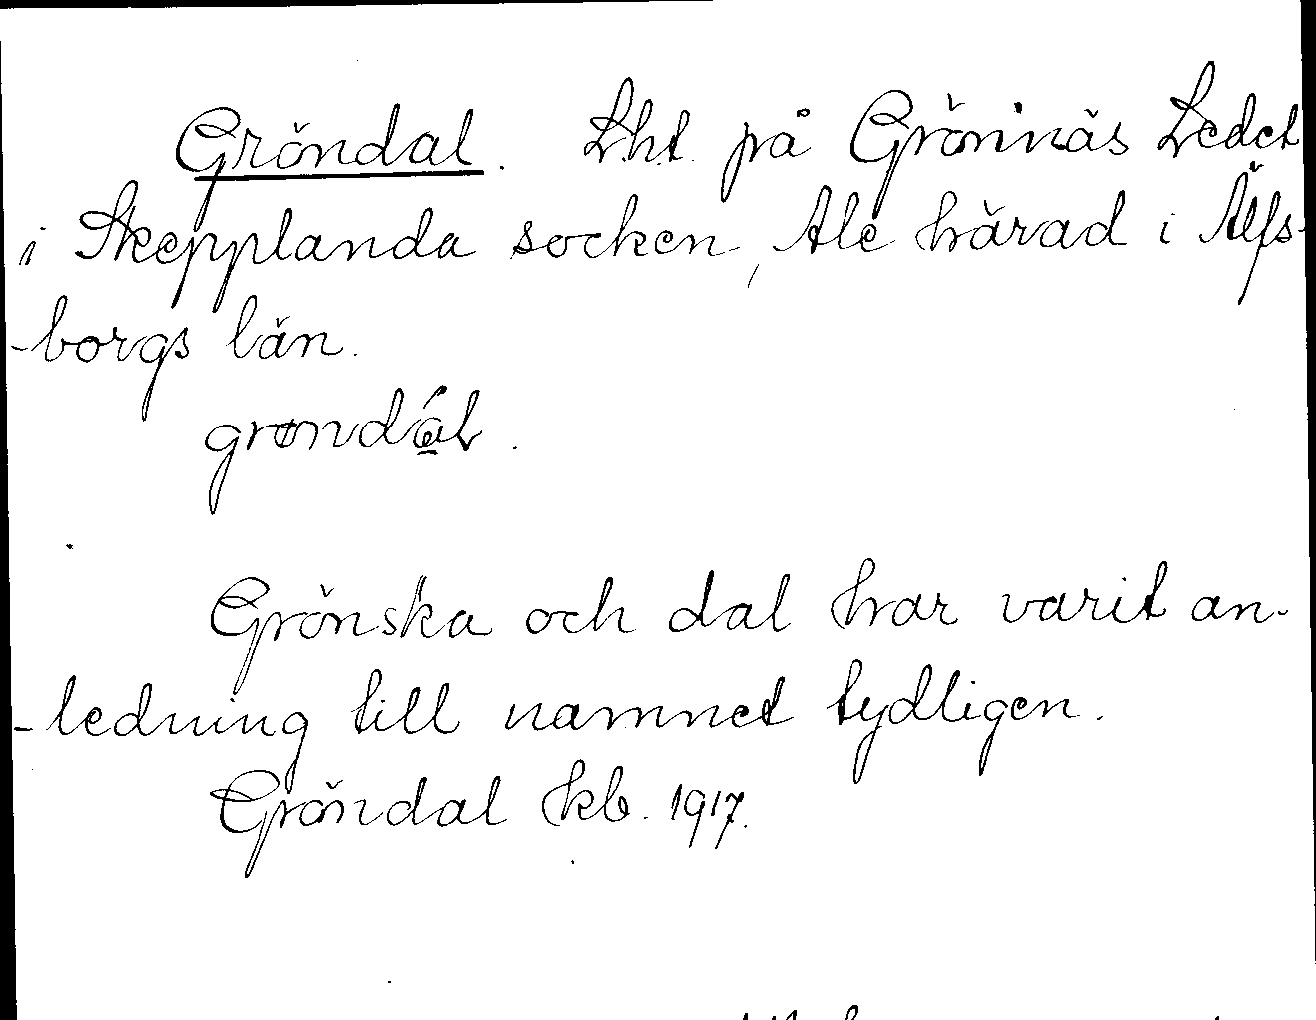 Gröndal. Lht. på Grönnäs Ledet
i Skepplanda socken, Ale härad i Älfs-
-borgs län.
grøndál.
Grönska och dal har varit an-
-ledning till namnet tydligen.
Gröndal hkb. 1917.